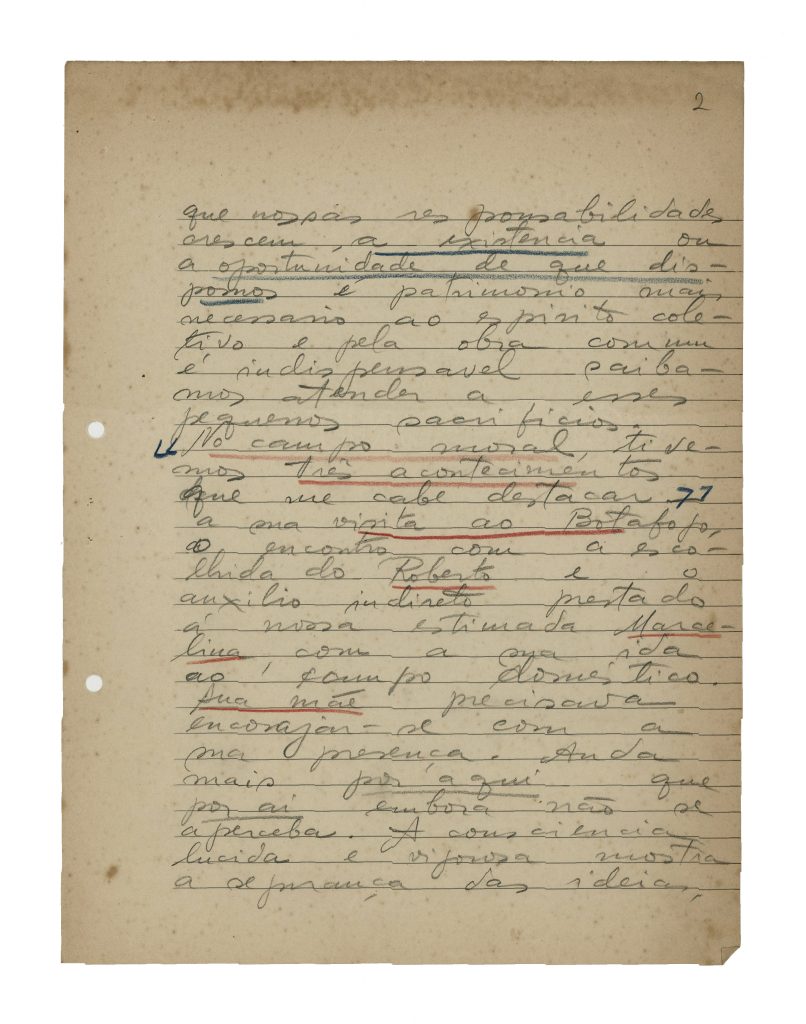 2
que nossas responsabilidades
crescem, a existencia ou
a oportunidade de que dis-
pomos é patrimonio mais
necessario ao espirito cole-
tivo e pela obra commu
é indispensavel saiba-
mos atender a esses
pequenos sacrificios.
No campo moral, tive-
mos três acontecimentos
que me cabe destacar
a sua visita ao Botafogo,
o encontro com a esco-
lhida do Roberto e o
auxilio indireto prestado
á nossa estimada Marce-
lina com a sua ida
ao campo doméstico.
Sua mãe precisava
encorajar-se com a
sua presença. Anda
mais por aqui que
por ai embora não se
aperceba. A consciencia
lucida e vigorosa mostra
a segurança das ideias,